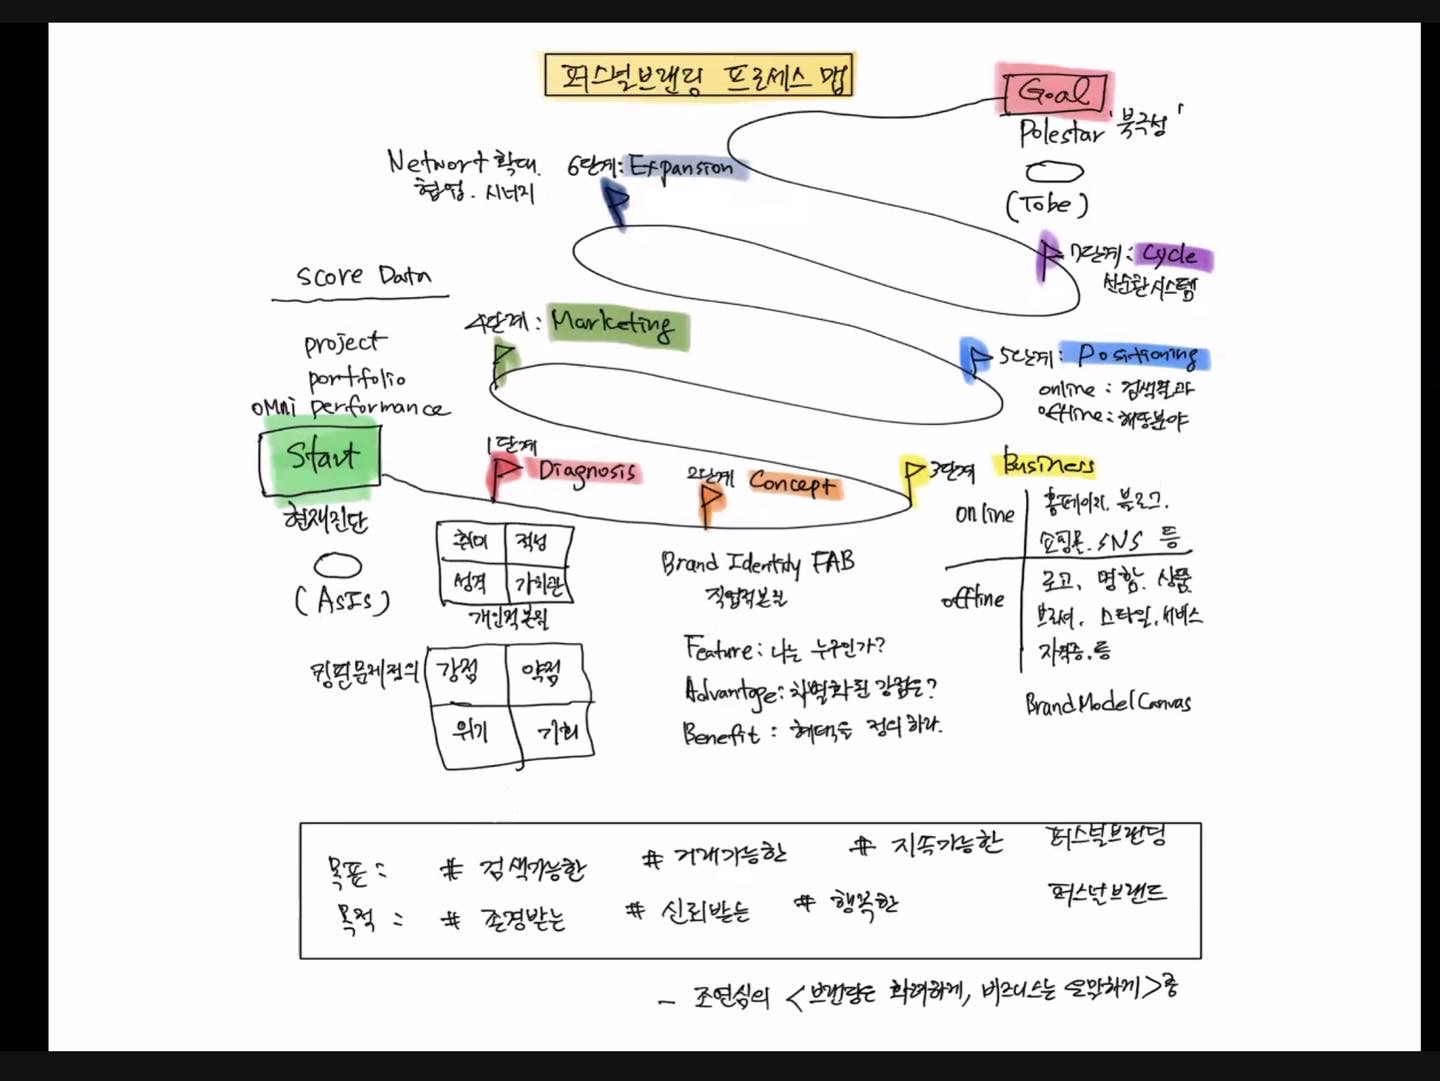 퍼스널브랜딩 프로세스 맵
Goal
Polestar '북극성'
(Tobe)
Network 확대.
협업. 시너지
6단계: Expansion
7단계: Cycle
선순환시스템
Score Data
project
portfolio
oMni performance
4단계: Marketing
5단계: Positioning
online: 검색결과
offline: 해당분야
Start
현재진단
(AsIs)
1단계
Diagnosis
취미 적성
성격 가치관
개인적본질
당면문제정의
강점 약점
위기 기회
2단계 Concept
Brand Identity FAB
직업적본질
Feature: 나는 누구인가?
Advantage: 차별화된 강점은?
Benefit: 혜택을 정의하라.
3단계 Business
online
홈페이지. 블로그.
쇼핑몰. SNS 등
offline
로고, 명함. 상품
브로셔. 스타일. 서비스
자격증. 등
BrandModelCanvas
목표: # 검색가능한 # 거래가능한 # 지속가능한 퍼스널브랜딩
목적: # 존경받는 # 신뢰받는 # 행복한 퍼스널브랜드
- 조연심의 <브랜딩은 화려하게, 비즈니스는 소박하게> 중